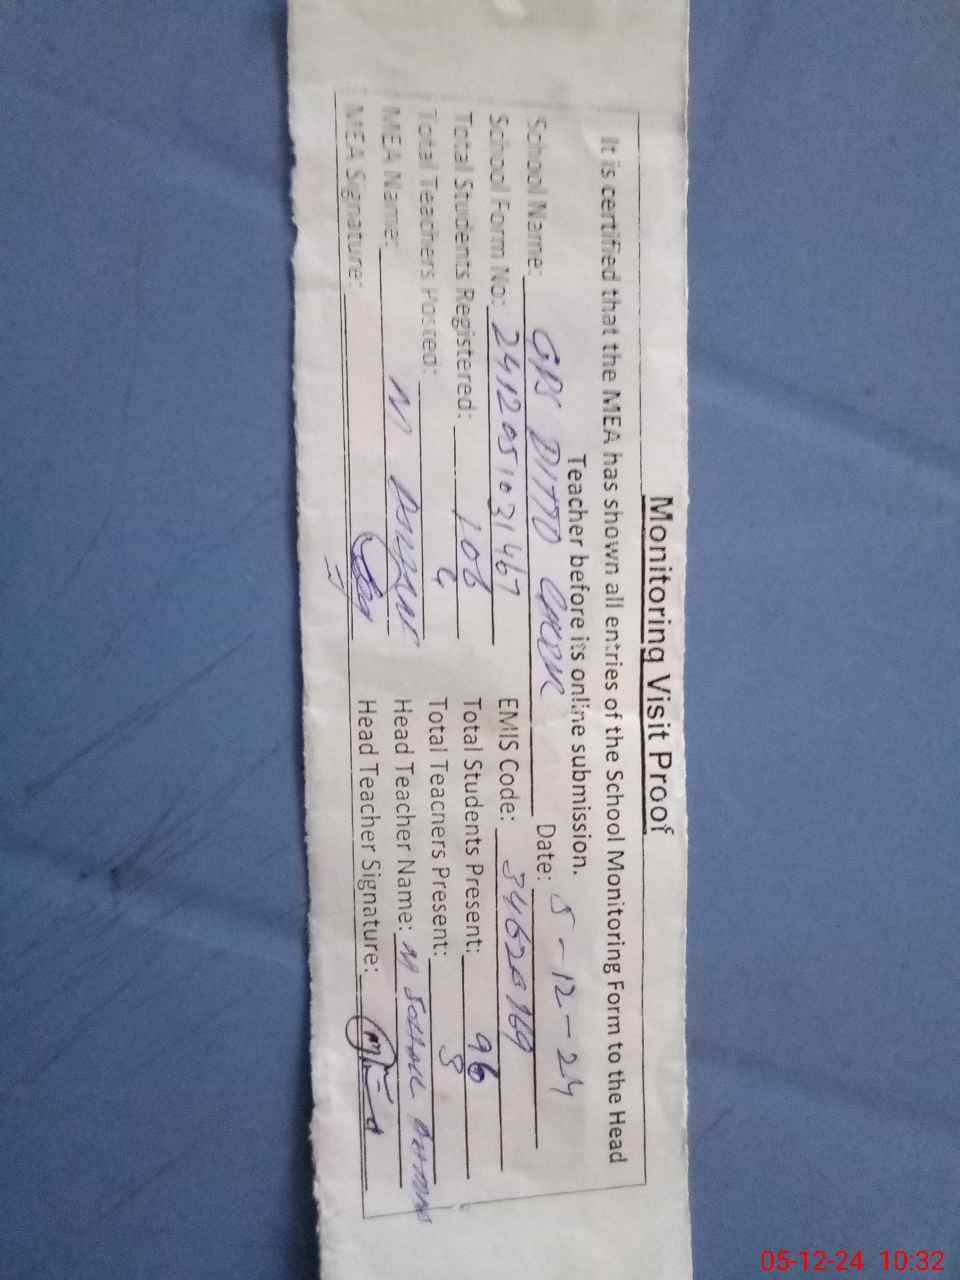 Monitoring Visit Proof
It is certified that the MEA has shown all entries of the School Monitoring Form to the Head
Teacher before its online submission.
School Name: GPS DITTO Date: 5-12-24
School Form No: 2412051031467 EMIS Code: 34620169
Total Students Registered: 106 Total Students Present: 96
Total Teachers Posted: Total Teachers Present:
MEA Name: M Head Teacher Name: M
MEA Signature: Head Teacher Signature:
05-12-24 10:32